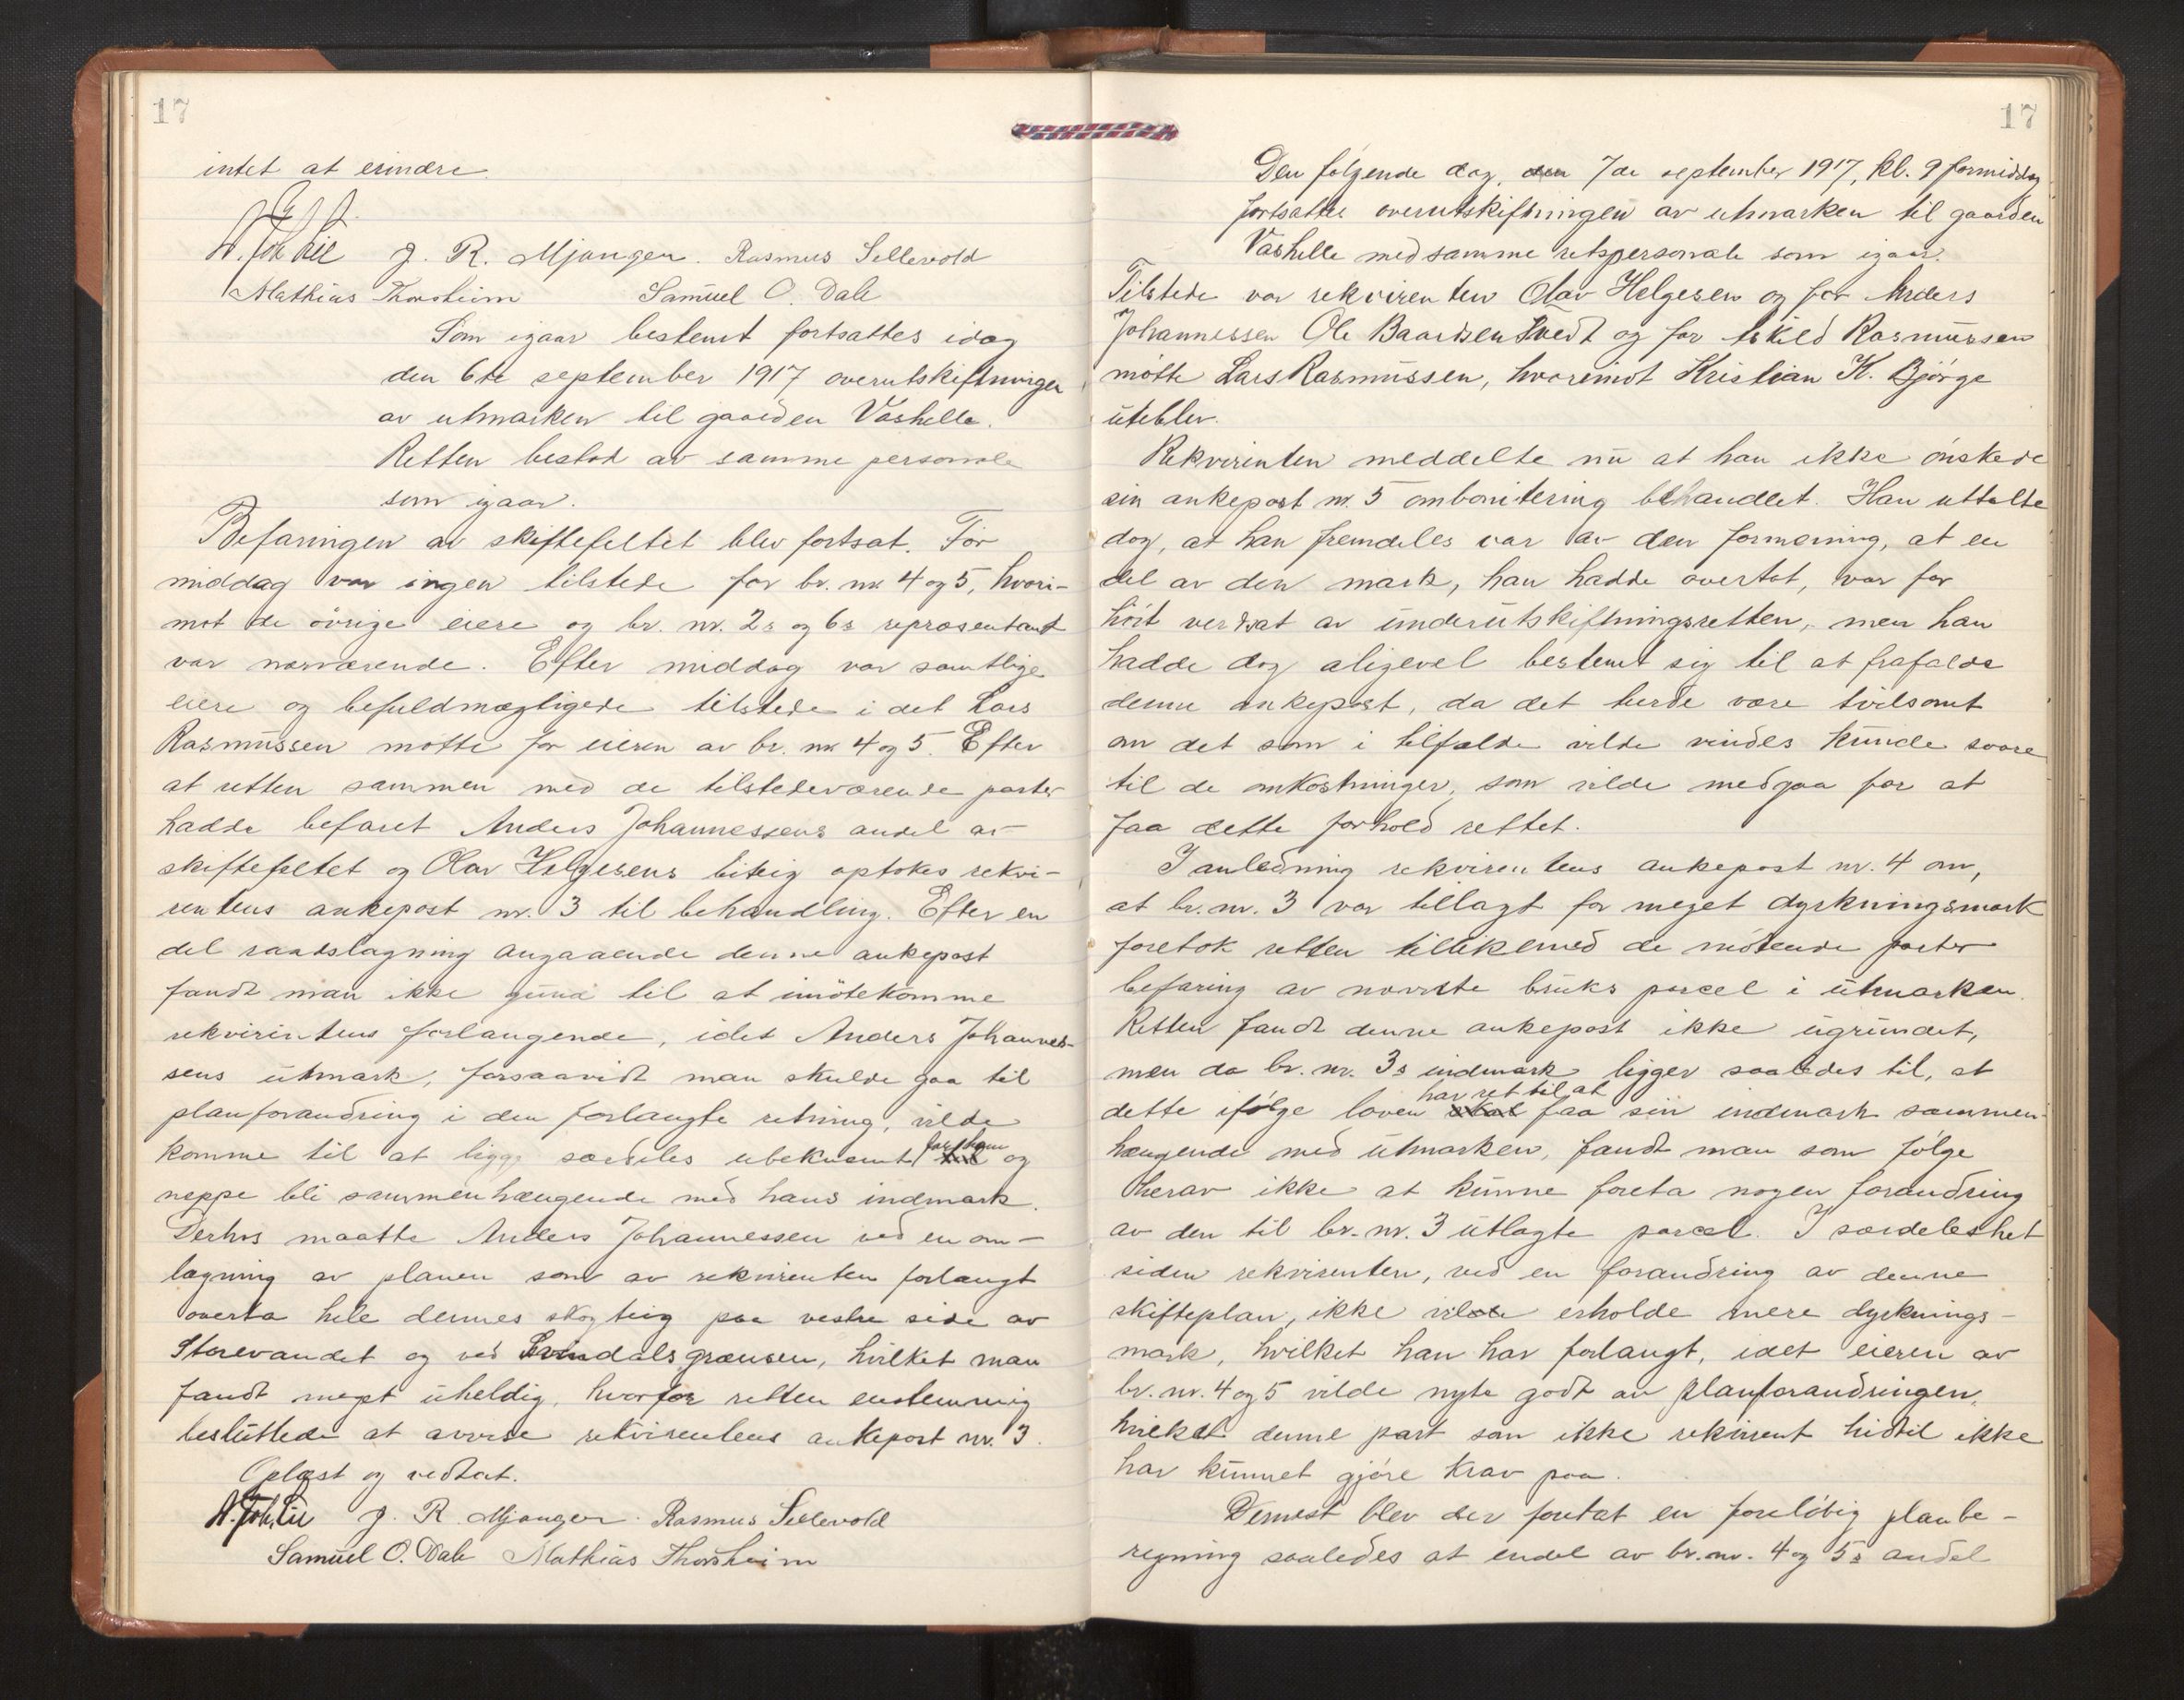 17
intet at erindre.
J. R. Mjanger. Rasmus Sellevold
Mathias Thorsheim Samuel O. Dale
Som igaar bestemt fortsattes idag
den 6te september 1917 overutskiftningen
av utmarken til gaarden Vashelle.
Retten bestod av samme personale
som igaar.
Befaringen av skiftefeltet blev fortsat. Før
middag var ingen tilstede for br. nr. 4 og 5, hvori-
mot de övrige eiere og br. nr. 2s og 6s repræsentant
var nærværende. Efter middag var samtlige
eiere og befuldmægtigede tilstede i det Lars
Rasmussen møtte for eieren av br. nr. 4 og 5. Efter
at retten sammen med de tilstedeværende parter
hadde befaret Anders Johannessens andel av
skiftefeltet og Olav Helgesens liteig optokes rekvi-
rentens ankepost nr. 3 til behandling. Efter en
del raadslagning angaaende denne ankepost
fandt man ikke grund til at imötekomme
rekvirentens forlangende, idet Anders Johannes-
sens utmark, forsaavidt man skulde gaa til
planforandring i den forlangte retning, vilde
komme til at ligge særdeles ubekvæmt for ham og
neppe bli sammenhængende med hans indmark.
Derhos maatte Anders Johannessen ved en om-
lægning av planen som av rekvirenten forlangt
overta hele dennes skogteig paa vestre side av
Storevandet og ved Svindalsgrænsen, hvilket man
fandt meget uheldig, hvorfor retten enstemmig
besluttede at avvise rekvirentens ankepost nr. 3.
Oplæst og vedtat.
J. R. Mjanger. Rasmus Sellevold
Samuel O. Dale Mathias Thorsheim
17
Den følgende dag, den 7de september 1917, kl. 9 formiddag
fortsattes overutskiftningen av utmarken til gaarden
Vashelle med samme retspersonale som igaar.
Tilstede var rekvirenten Olav Helgesen og for Anders
Johannessen Ole Baardsen Tvedt og for Eskild Rasmussen
mötte Lars Rasmussen, hvorimot Kristian K. Bjørge
uteblev.
Rekvirenten meddelte nu at han ikke ønskede
sin ankepost nr. 5 ombonitering behandlet. Han uttalte
dog, at han fremdeles var av den formening, at en
del av den mark, han hadde overtat, var for
höit verdsat av underutskiftningsretten, men han
hadde dog aligevel bestemt sig til at frafalde
denne ankepost, da det turde være tvilsomt
om det som i tilfælde vilde vindes kunde svare
til de omkostninger, som vilde medgaa for at
faa dette forhold rettet.
I anledning rekvirentens ankepost nr. 4 om,
at br. nr. 3 var tillagt for meget dyrkningsmark
foretok retten tillikemed de mötende parter
befaring av nævnte bruks parcel i utmarken.
Retten fandt denne ankepost ikke ugrundet,
men da br. nr. 3s indmark ligger saaledes til, at
dette ifölge loven har ret til at faa sin indmark sammen-
hængende med utmarken, fandt man som følge
herav ikke at kunne foreta nogen forandring
av den til br. nr. 3 utlagte parcel. I særdeleshet
siden rekvirenten, ved en forandring av denne
skifteplan, ikke vilde erholde mere dyrknings-
mark, hvilket han har forlangt, idet eieren av
br. nr. 4 og 5 vilde nyte godt av planforandringen,
hvilket denne part som ikke rekvirent hidtil ikke
har kunnet gjöre krav paa.
Dernest blev der foretat en forelöbig planbe-
regning saaledes at endel av br. nr. 4 og 5s andel